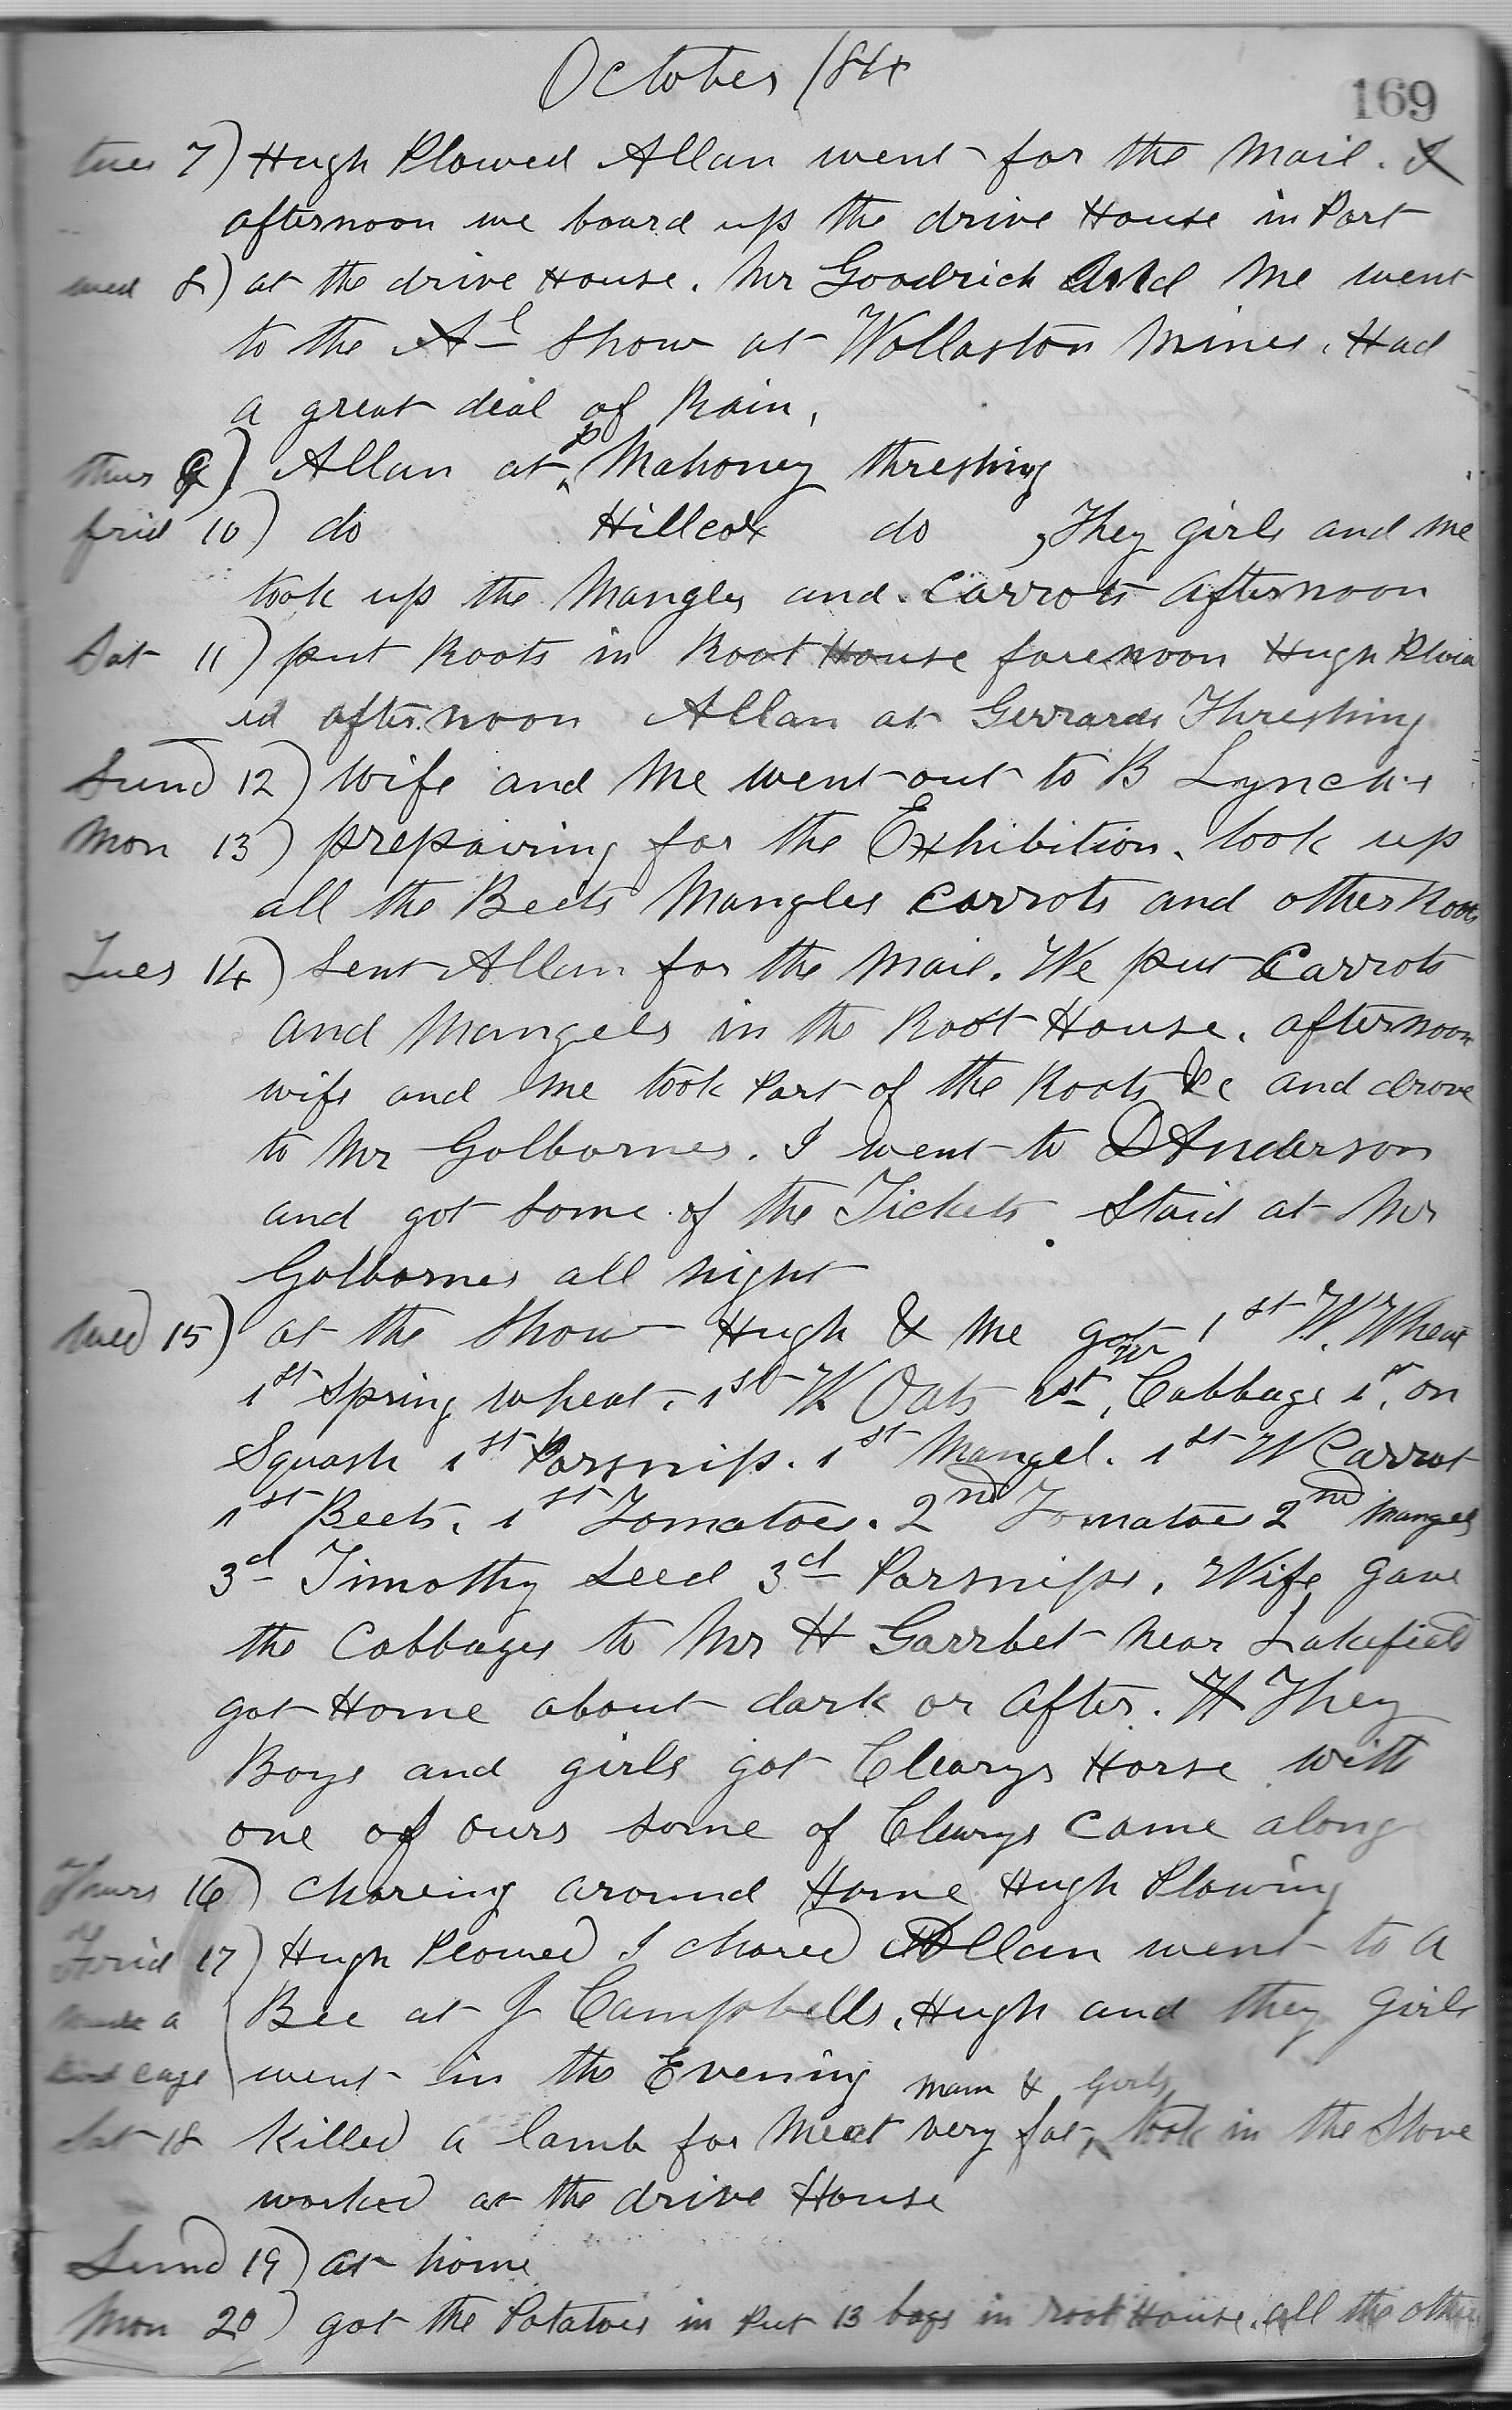 October /84
169
tues 7) Hugh Plowed Allan went for the Mail. &
afternoon we board up the drive House in Part
wed 8) at the drive House. Mr Goodrich And Me went
to the Al Show at Wollaston Mines. Had
a great deal of Rain,
thus 9) Allan at P Mahoney threshing
frid 10) do Hillcox do , They girls and me
took up the Mangles and Carrots afternoon
Sat 11) put Roots in Root House forenoon Hugh Plow
ed afternoon Allan at Gerrards Threshing
Sund 12) Wife and Me went out to B Lynch's
Mon 13) prepairing for the Exhibition. took up
all the Beets Mangles Carrots and other Roots
Tues 14) Sent Allan for the Mail. We put Carrots
and Mangels in the Root House. afternoon
wife and me took Part of the Roots &c and drove
to Mr Golbornes. I went to D Anderson
and got some of the Tickets Staid at Mr
Golbornes all night
Wed 15) at the Show Hugh & Me got 1st W. Wheat
1st Spring wheat. 1st W Oats 1st W Cabbage 1st on
Squash 1st Parsnip. 1st Mangel. 1st W Carrot
1st Beets. 1st Tomatoes. 2nd Tomatoes 2nd Mangels
3d Timothy Seed 3d Parsnips. Wife gave
the Cabbages to Mr H Garrbet near Lakefield
got Home about dark or after. They
Boys and girls got Clearys Horse with
one of ours some of Clearys Came along
Thurs 16) Choreing around Home Hugh Plowing
Frid 17) Hugh Plowed I chored Allan went to a
made a Bee at J Campbells. Hugh and they girls
Bird Cage went in the Evening
Mam & Girls
Sat 18 Killed a lamb for Meat very fat, took in the Show
worked at the drive House
Sund 19) at home
Mon 20) got the Potatoes in Put 13 bags in root House. all the other